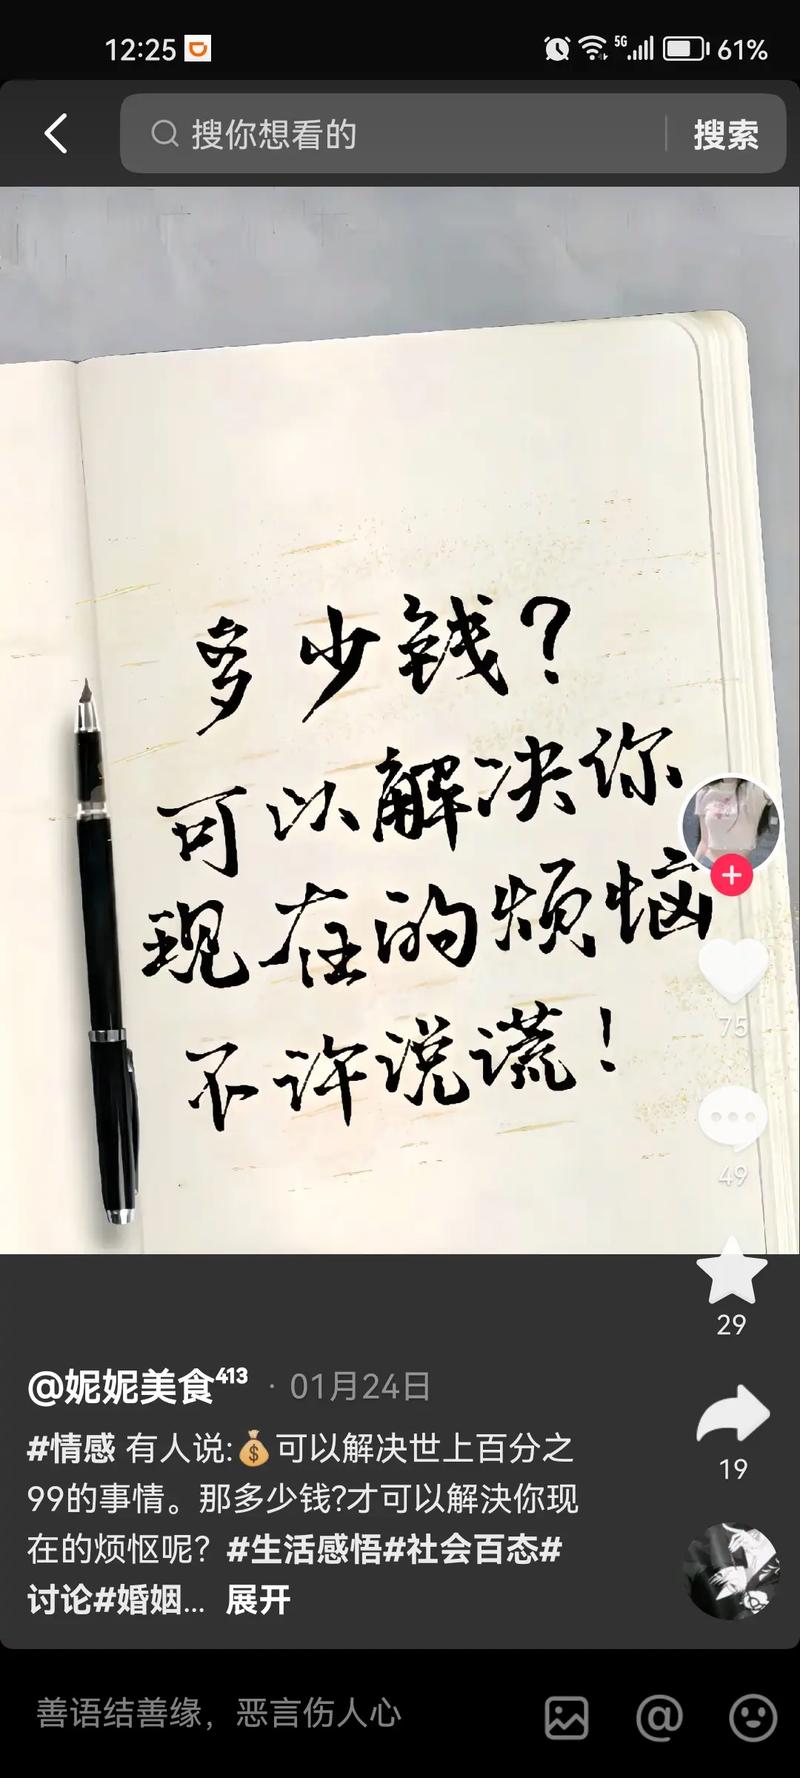 12:25
5G
61%
搜你想看的
搜索
多少钱？
可以解决你
现在的烦恼
不许说谎！
75
49
29
19
@妮妮美食⁴¹³ · 01月24日
#情感 有人说:💰可以解决世上百分之
99的事情。那多少钱?才可以解決你现
在的烦怄呢？#生活感悟#社会百态#
讨论#婚姻... 展开
善语结善缘，恶言伤人心